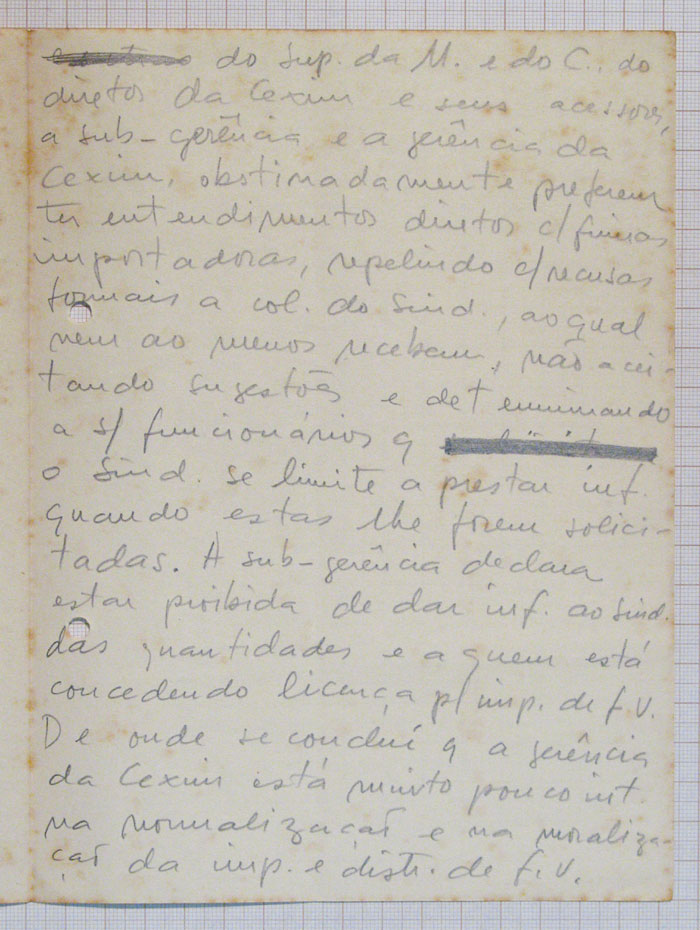 do Sup. da M. e do C., do
diretor da Cexim e seus acessores,
a sub-gerência e a gerência da
Cexim, obstinadamente preferem
ter entendimentos diretos c/firmas
importadoras, repelindo c/recusas
formais a col. do Sind., ao qual
nem ao menos recebem, não acei-
tando sugestões e determinando
a s/ funcionários q
o Sind. se limite a prestar inf.
quando estas lhe forem solici-
tadas. A sub-gerência declara
estar proibida de dar inf. ao Sind.
das quantidades e a quem está
concedendo licença p/ imp. de f.V.
De onde se conclui q a gerência
da Cexim está muito pouco int.
na normalização e na moraliza-
ção da imp. e distr. de f.V.